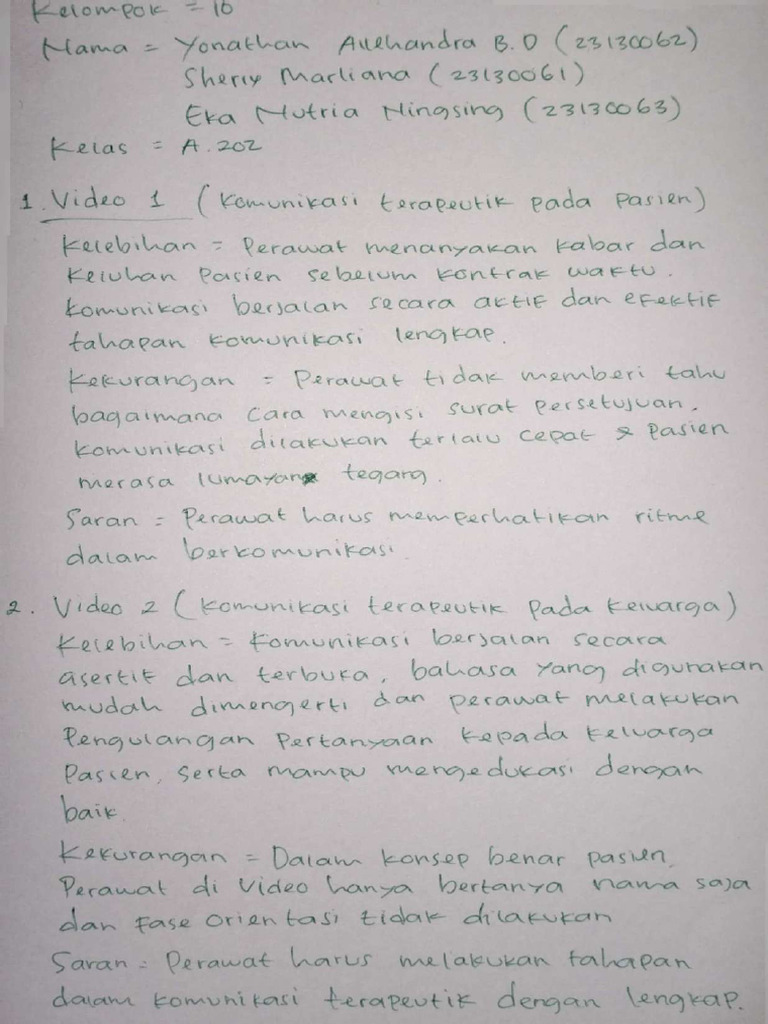 Kelompok = 10
Nama = Yonathan Allehandra B.D (23130062)
Sherly Marliana (23130061)
Eka Nutria Ningsing (23130063)
Kelas = A.202
1. Video 1 (Komunikasi terapeutik pada pasien)
Kelebihan = Perawat menanyakan kabar dan
keluhan pasien sebelum kontrak waktu.
komunikasi berjalan secara aktif dan efektif
tahapan komunikasi lengkap.
Kekurangan = Perawat tidak memberi tahu
bagaimana cara mengisi surat persetujuan.
komunikasi dilakukan terlalu cepat & pasien
merasa lumayan tegang.
Saran = Perawat harus memperhatikan ritme
dalam berkomunikasi
2. Video 2 (komunikasi terapeutik pada keluarga)
Kelebihan = Komunikasi berjalan secara
asertif dan terbuka, bahasa yang digunakan
mudah dimengerti dan perawat melakukan
Pengulangan pertanyaan kepada keluarga
Pasien, serta mampu mengedukasi dengan
baik.
Kekurangan = Dalam konsep benar pasien,
Perawat di video hanya bertanya nama saja
dan fase orientasi tidak dilakukan
Saran = Perawat harus melakukan tahapan
dalam komunikasi terapeutik dengan lengkap.